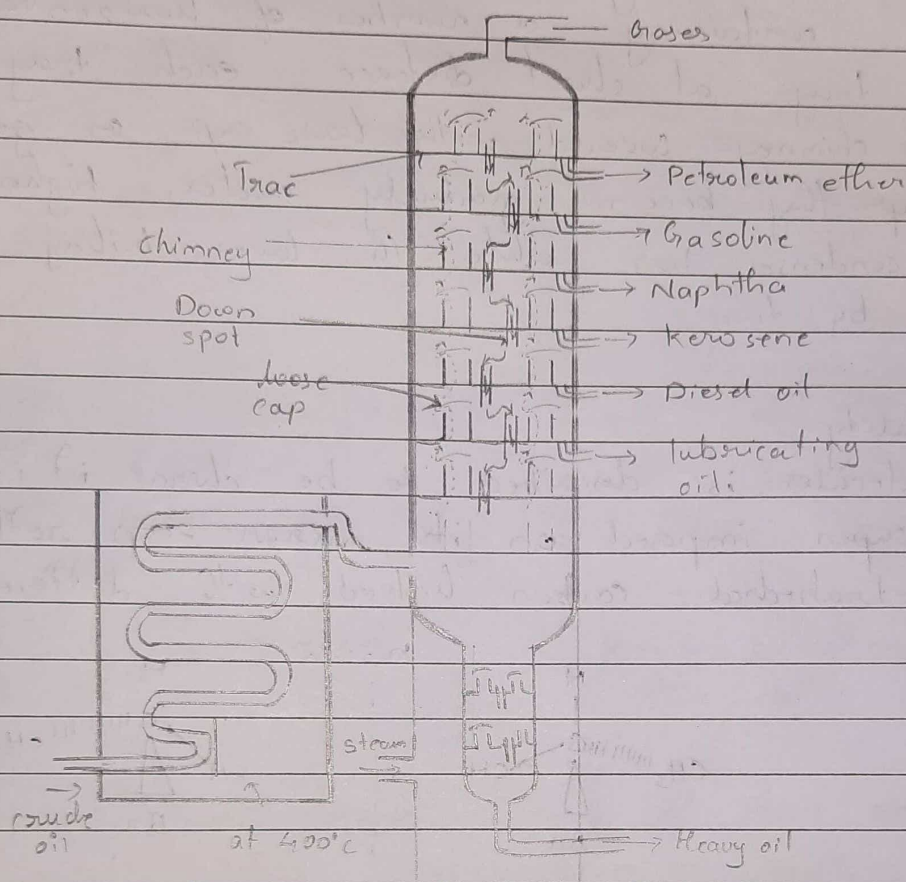 Gases
Trac
Petroleum ether
Gasoline
chimney
Naphtha
Down
spot
kerosene
loose
cap
Diesel oil
lubricating
oil:
steam
crude
oil
at 400°C
Heavy oil